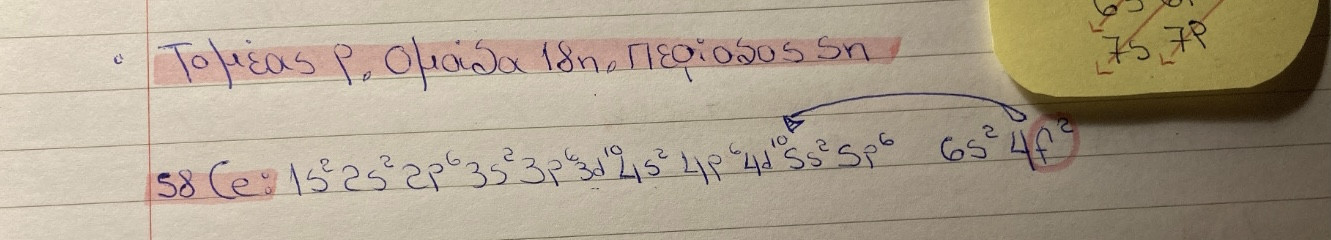 6s 6p
7s 7p
• Τομέας P, Ομάδα 18η, Περίοδος 5η
58 Ce: 1s² 2s² 2p⁶ 3s² 3p⁶ 3d¹⁰ 4s² 4p⁶ 4d¹⁰ 5s² 5p⁶ 6s² 4f²